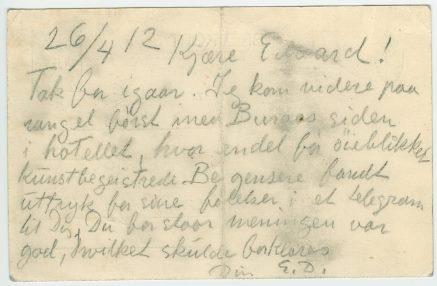 26/4 12 Kjære Edvard!
Tak for igaar. Je kom videre paa
rangel først med Buraas siden
i hotellet, hvor endel for öieblikket
kunstbegeistrede Bergensere fandt
uttryk for sine følelser i et telegram
til Dig, Du forstaar meningen var
god, hvilket skulde forklares
Din E.D.